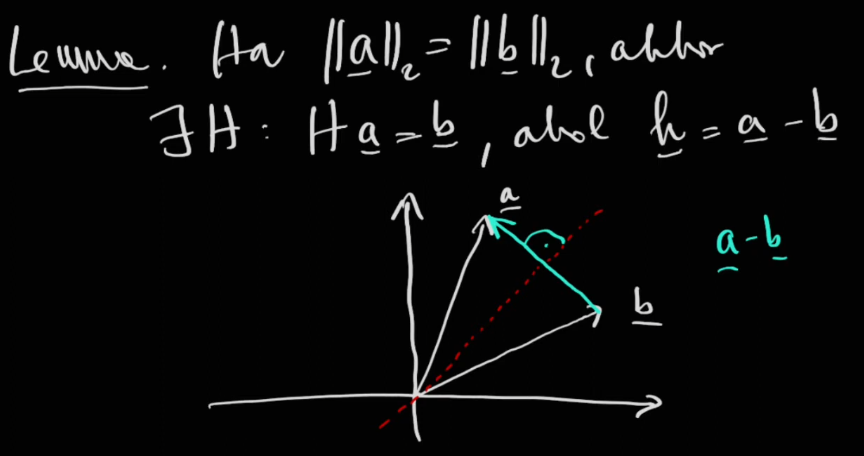 Lemma. Ha ||a||₂ = ||b||₂, akkor
∃H: Ha = b, ahol h = a - b
a
a - b
b